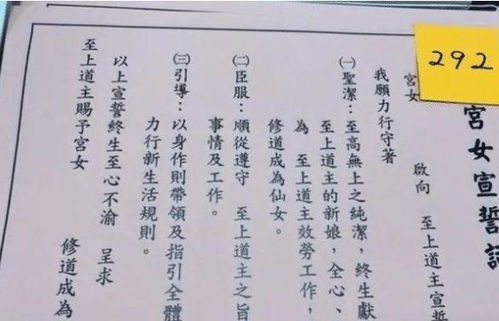 292
宮女宣誓詞
宮女
啟向 至上道主宣誓
我願力行守著
㈠聖潔：至高無上之純潔，終生獻
至上道主的新娘，全心、
為 至上道主效勞工作，
修道成為仙女。
㈡臣服：順從遵守 至上道主之旨
事情及工作。
㈢引導：以身作則帶領及指引全體
力行新生活規則。
以上宣誓終生至心不渝 呈求
至上道主賜予宮女
修道成為